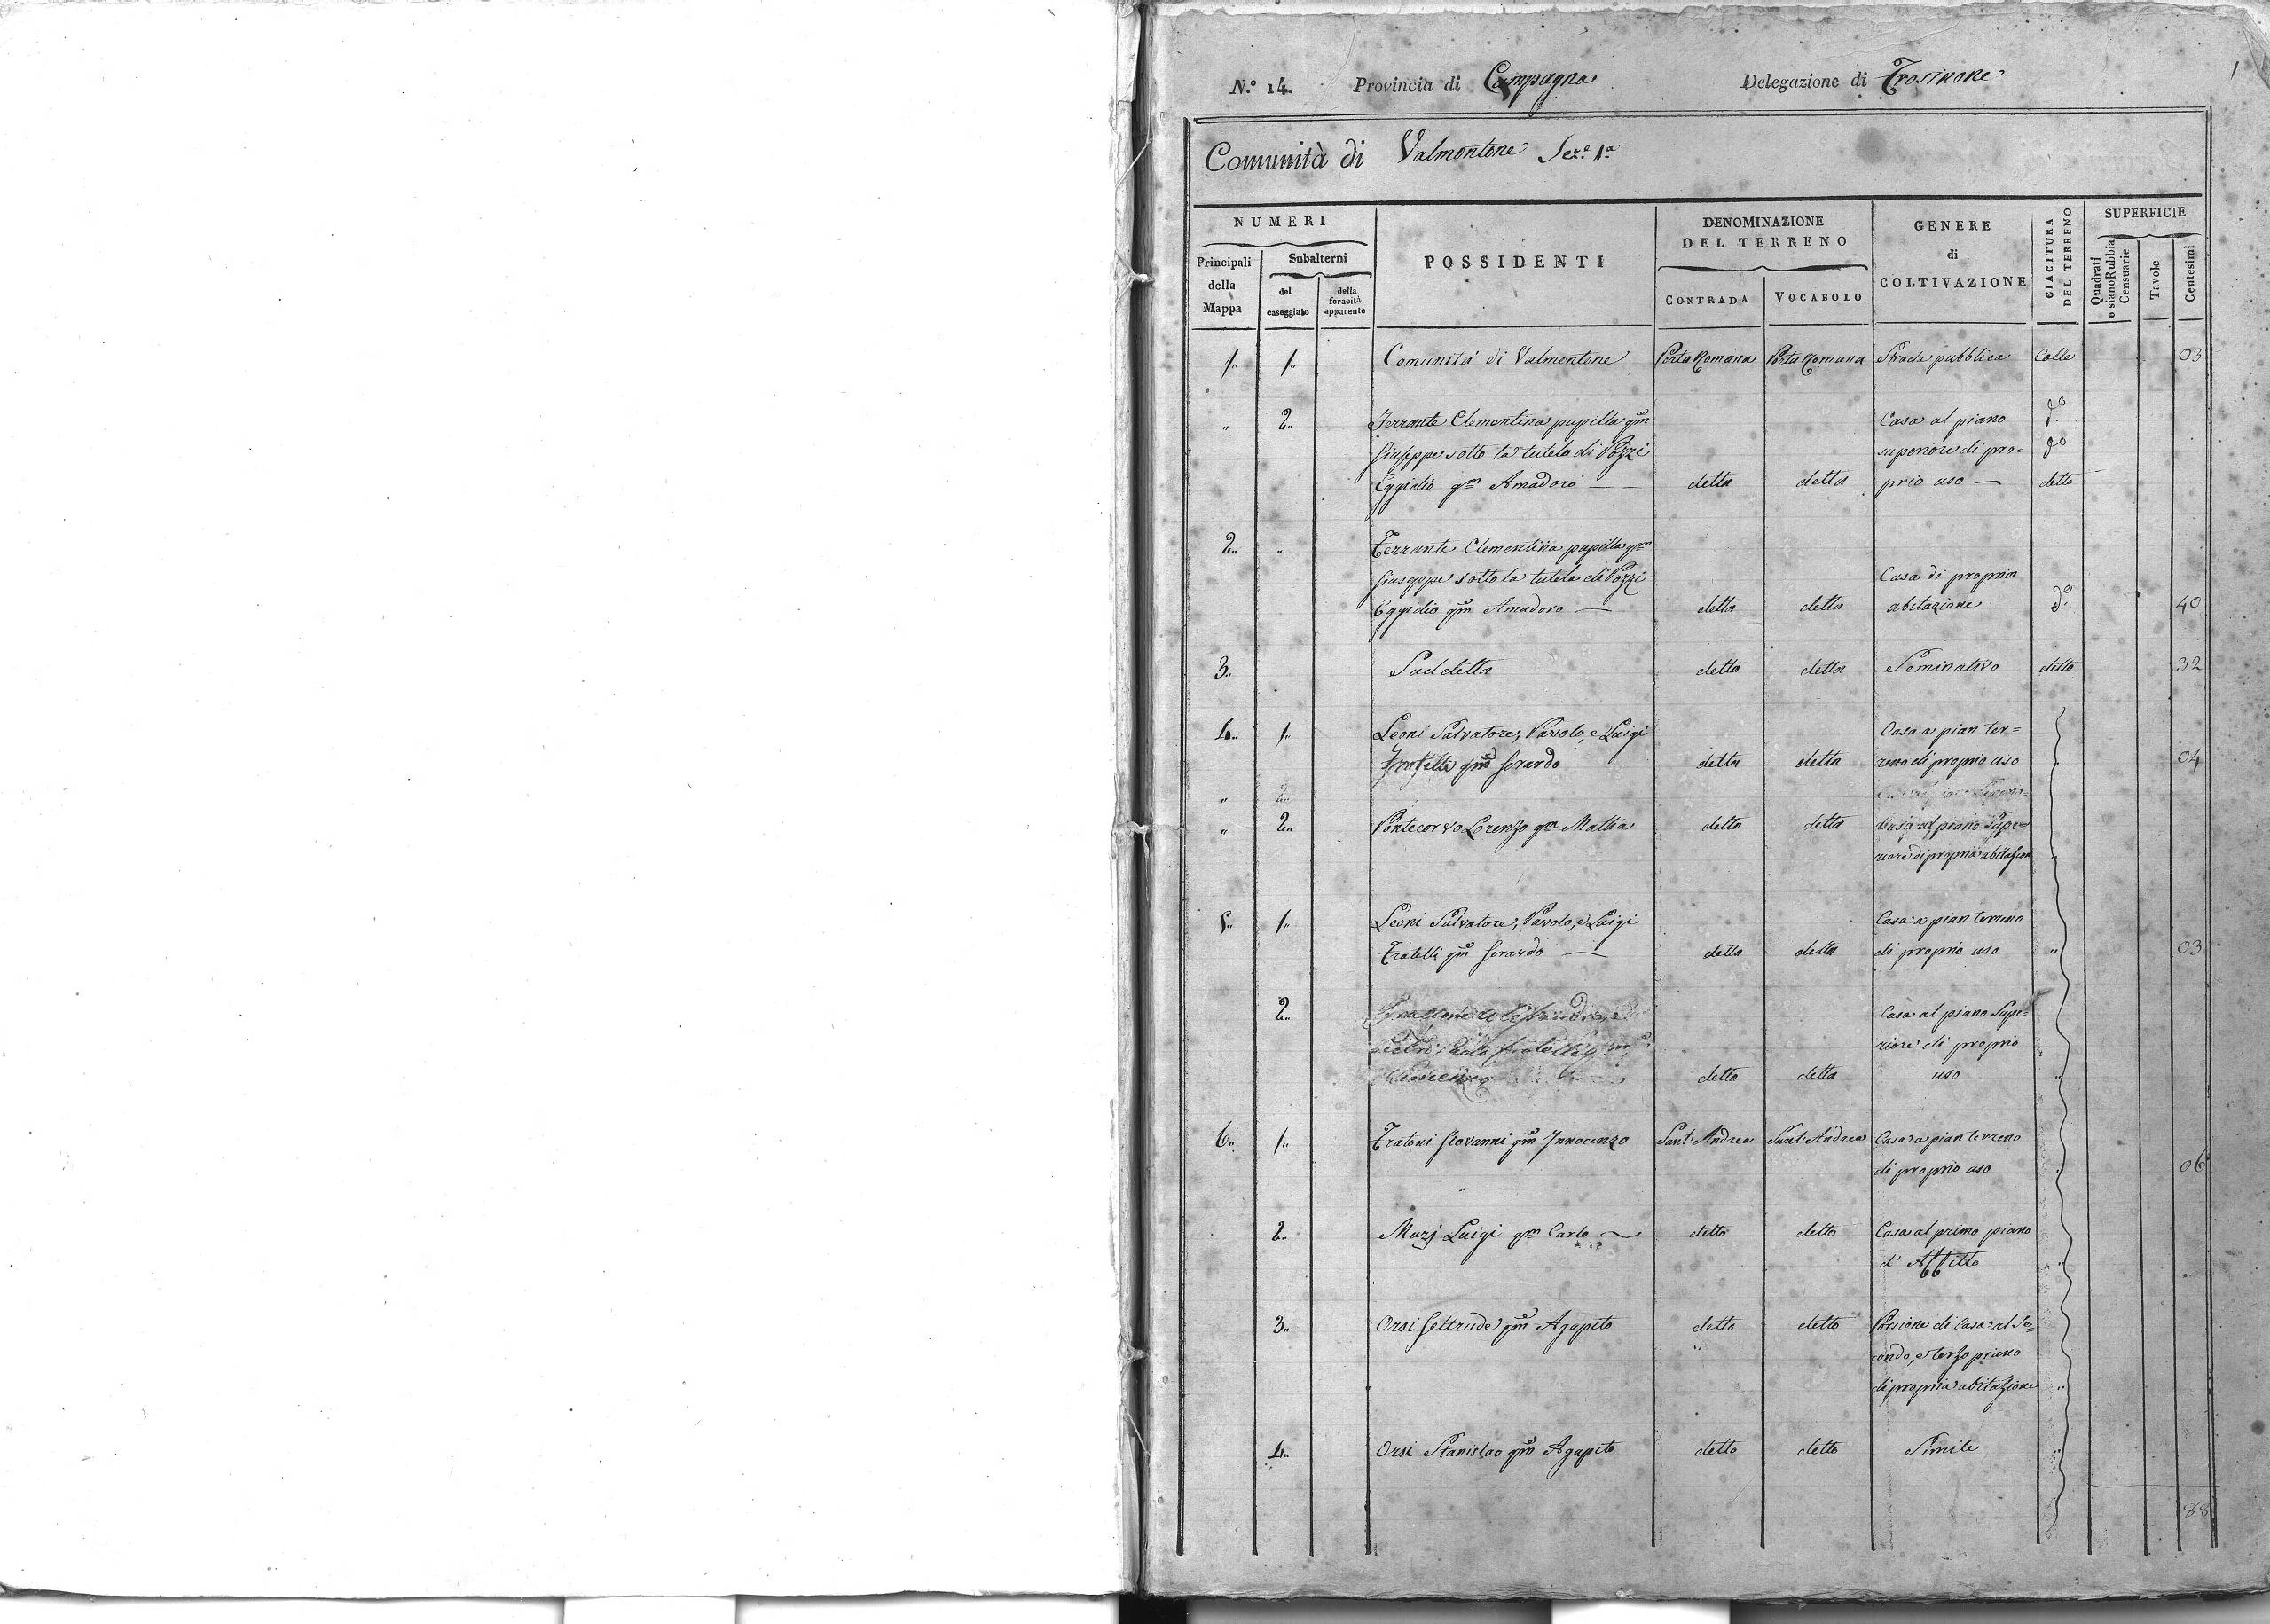 1
N.° 14. Provincia di Campagna Delegazione di Frosinone
Comunità di Valmontone Sez.e 1a
NUMERI
Principali della Mappa
Subalterni
del caseggiato
della feracità apparente
POSSIDENTI
DENOMINAZIONE DEL TERRENO
CONTRADA
VOCABOLO
GENERE di COLTIVAZIONE
GIACITURA DEL TERRENO
SUPERFICIE
Quadrati o siano Rubbia Censuarie
Tavole
Centesimi
1.. 1.. Comunità di Valmontone Porta Romana Porta Romana Strada pubblica Colle 03
" 2.. Ferrante Clementina pupilla qm Casa al piano do
Giuseppe sotto la tutela di Pozzi superiore di pro= do
Eggidio qm Amadoro — detta detta prio uso — detto
2.. " Ferrante Clementina pupilla qm
Giuseppe sotto la tutela di Pozzi Casa di propria
Eggidio qm Amadoro — detta detta abitazione do 40
3.. Suddetta detta detta Seminativo detto 32
4.. 1.. Leoni Salvatore, Paolo, e Luigi Casa a pian ter=
Fratelli qm Gerardo detta detta reno di proprio uso " 04
" 2..
" 2.. Pontecorvo Lorenzo qm Mattia detta detta Casa al piano Supe=
riore di propria abitazion "
5.. 1.. Leoni Salvatore, Paolo, e Luigi Casa a pian terreno
Fratelli qm Gerardo — detta detta di proprio uso " 03
2.. Casa al piano Supe=
fratelli riore di proprio
detta detta uso "
6.. 1.. Fratoni Giovanni qm Innocenzo Sant'Andrea Sant'Andrea Casa a pian terreno
di proprio uso " 06
2.. Muzj Luigi qm Carlo detto detto Casa al primo piano
d'Affitto "
3.. Orsi Geltrude qm Agapito detto detto Porsione di Casa al Se=
condo, e terzo piano
di propria abitazione "
4.. Orsi Stanislao qm Agapito detto detto Simile "
88